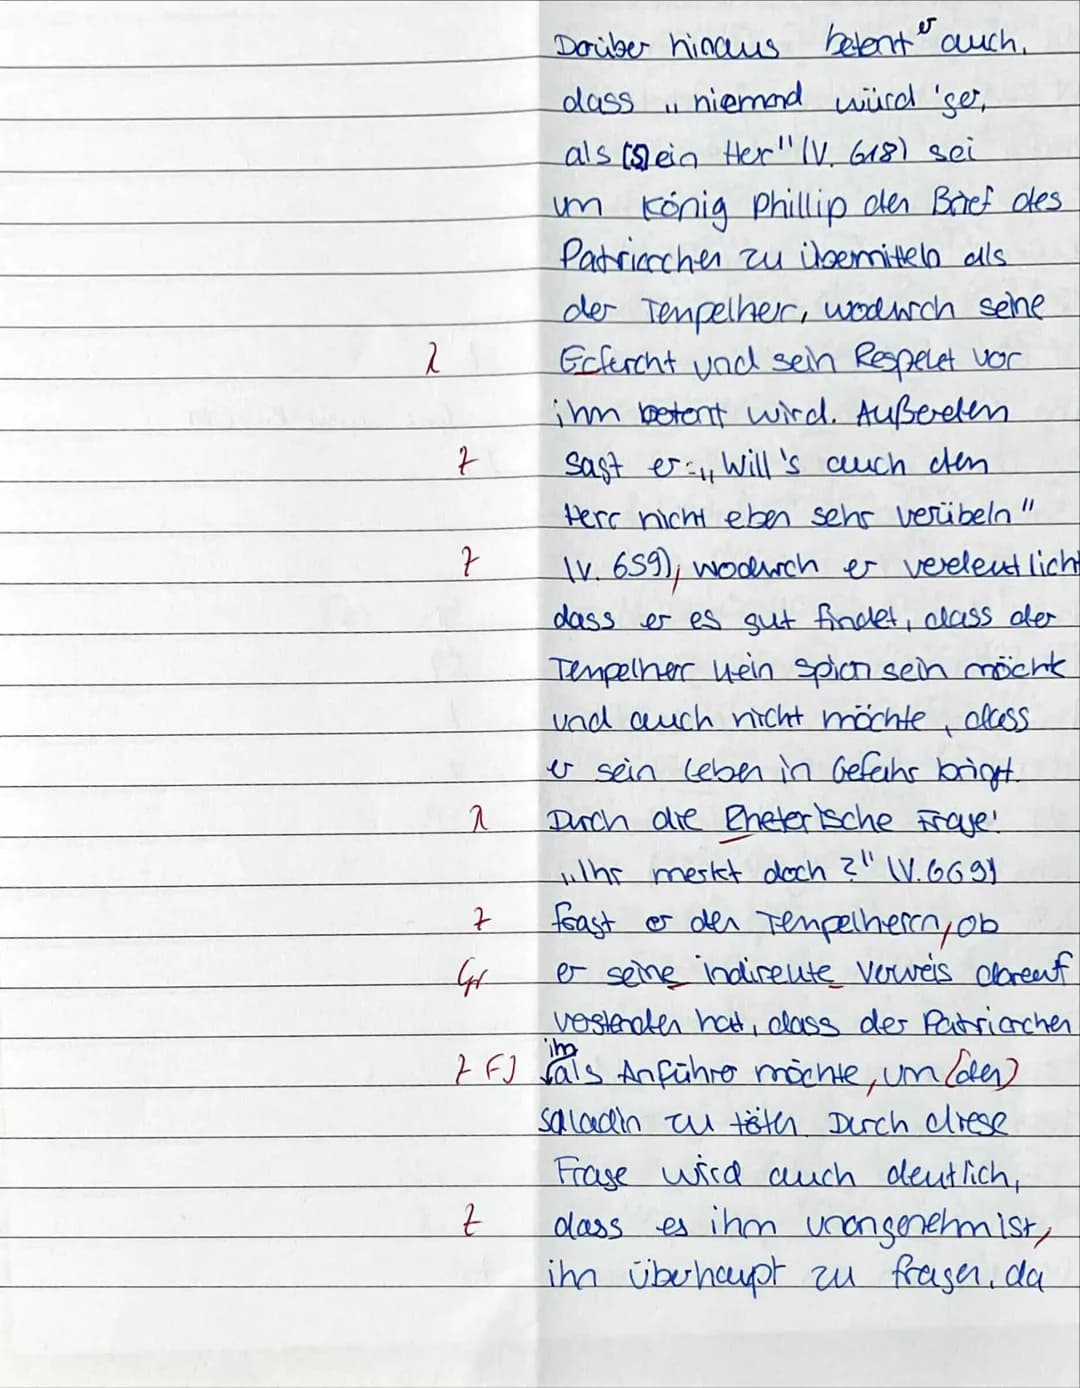 Darüber hinaus betont er auch,
dass „niemand würd'ger,
als [s]ein Herr" (V. 618) sei
um König Phillip den Brief des
Patriarchen zu übermitteln als
der Tempelherr, wodurch seine
λ Erfurcht und sein Respekt vor
ihm betont wird. Außerdem
Z sagt er: „Will's auch den
Herr nicht eben sehr verübeln"
Z (V. 659), wodurch er verdeutlicht
dass er es gut findet, dass der
Tempelherr kein Spion sein möchte
und auch nicht möchte, dass
er sein Leben in Gefahr bringt.
λ Durch die Rheterische Frage:
„Ihr merkt doch?" (V. 669)
Z fragt er den Tempelherrn, ob
Gr er seine indirekte Verweis darauf
verstanden hat, dass der Patriarchen
Z F) ihn als Anführer möchte, um (den)
Saladin zu töten. Durch diese
Frage wird auch deutlich,
Z dass es ihm unangenehm ist,
ihn überhaupt zu fragen, da